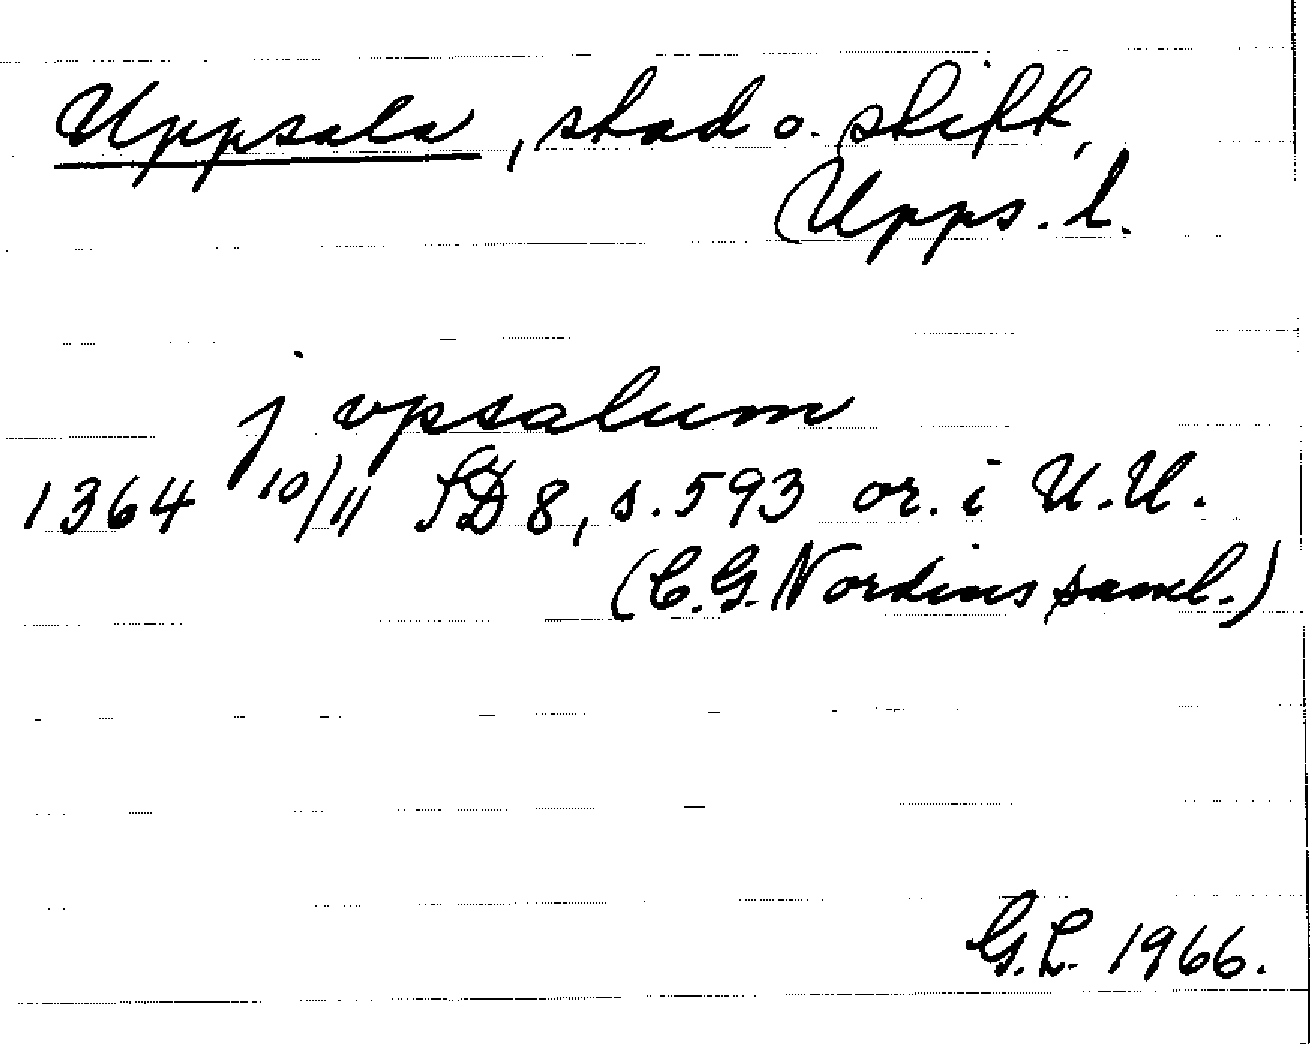 Uppsala, stad o. stift,
Upps. l.
j vpsalum
1364 10/11 SD 8, s. 593 or. i U.U.
(C.G. Nordins saml.)
G.L. 1966.